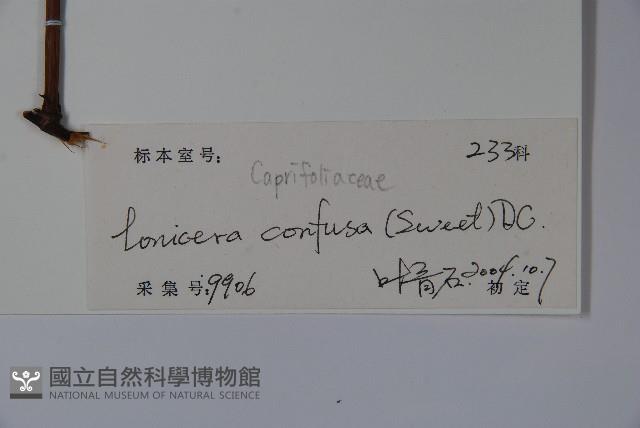 标本室号: 233科
Caprifoliaceae
Lonicera confusa (Sweet) DC.
采集号: 9906 叶育石 2004.10.7 初定
國立自然科學博物館
NATIONAL MUSEUM OF NATURAL SCIENCE